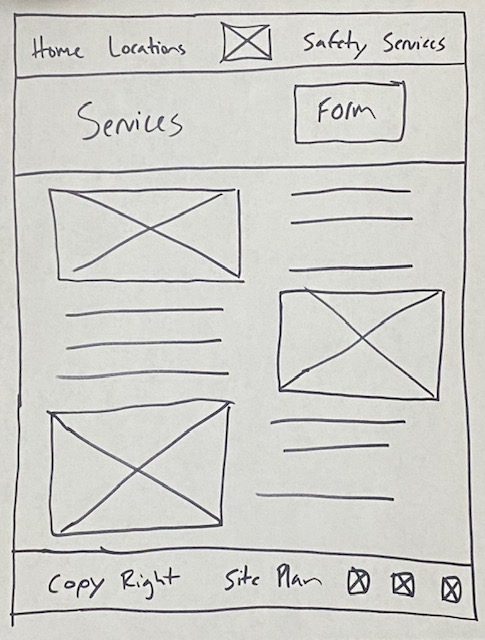 Home Locations Safety Services
Services
Form
Copy Right Site Plan